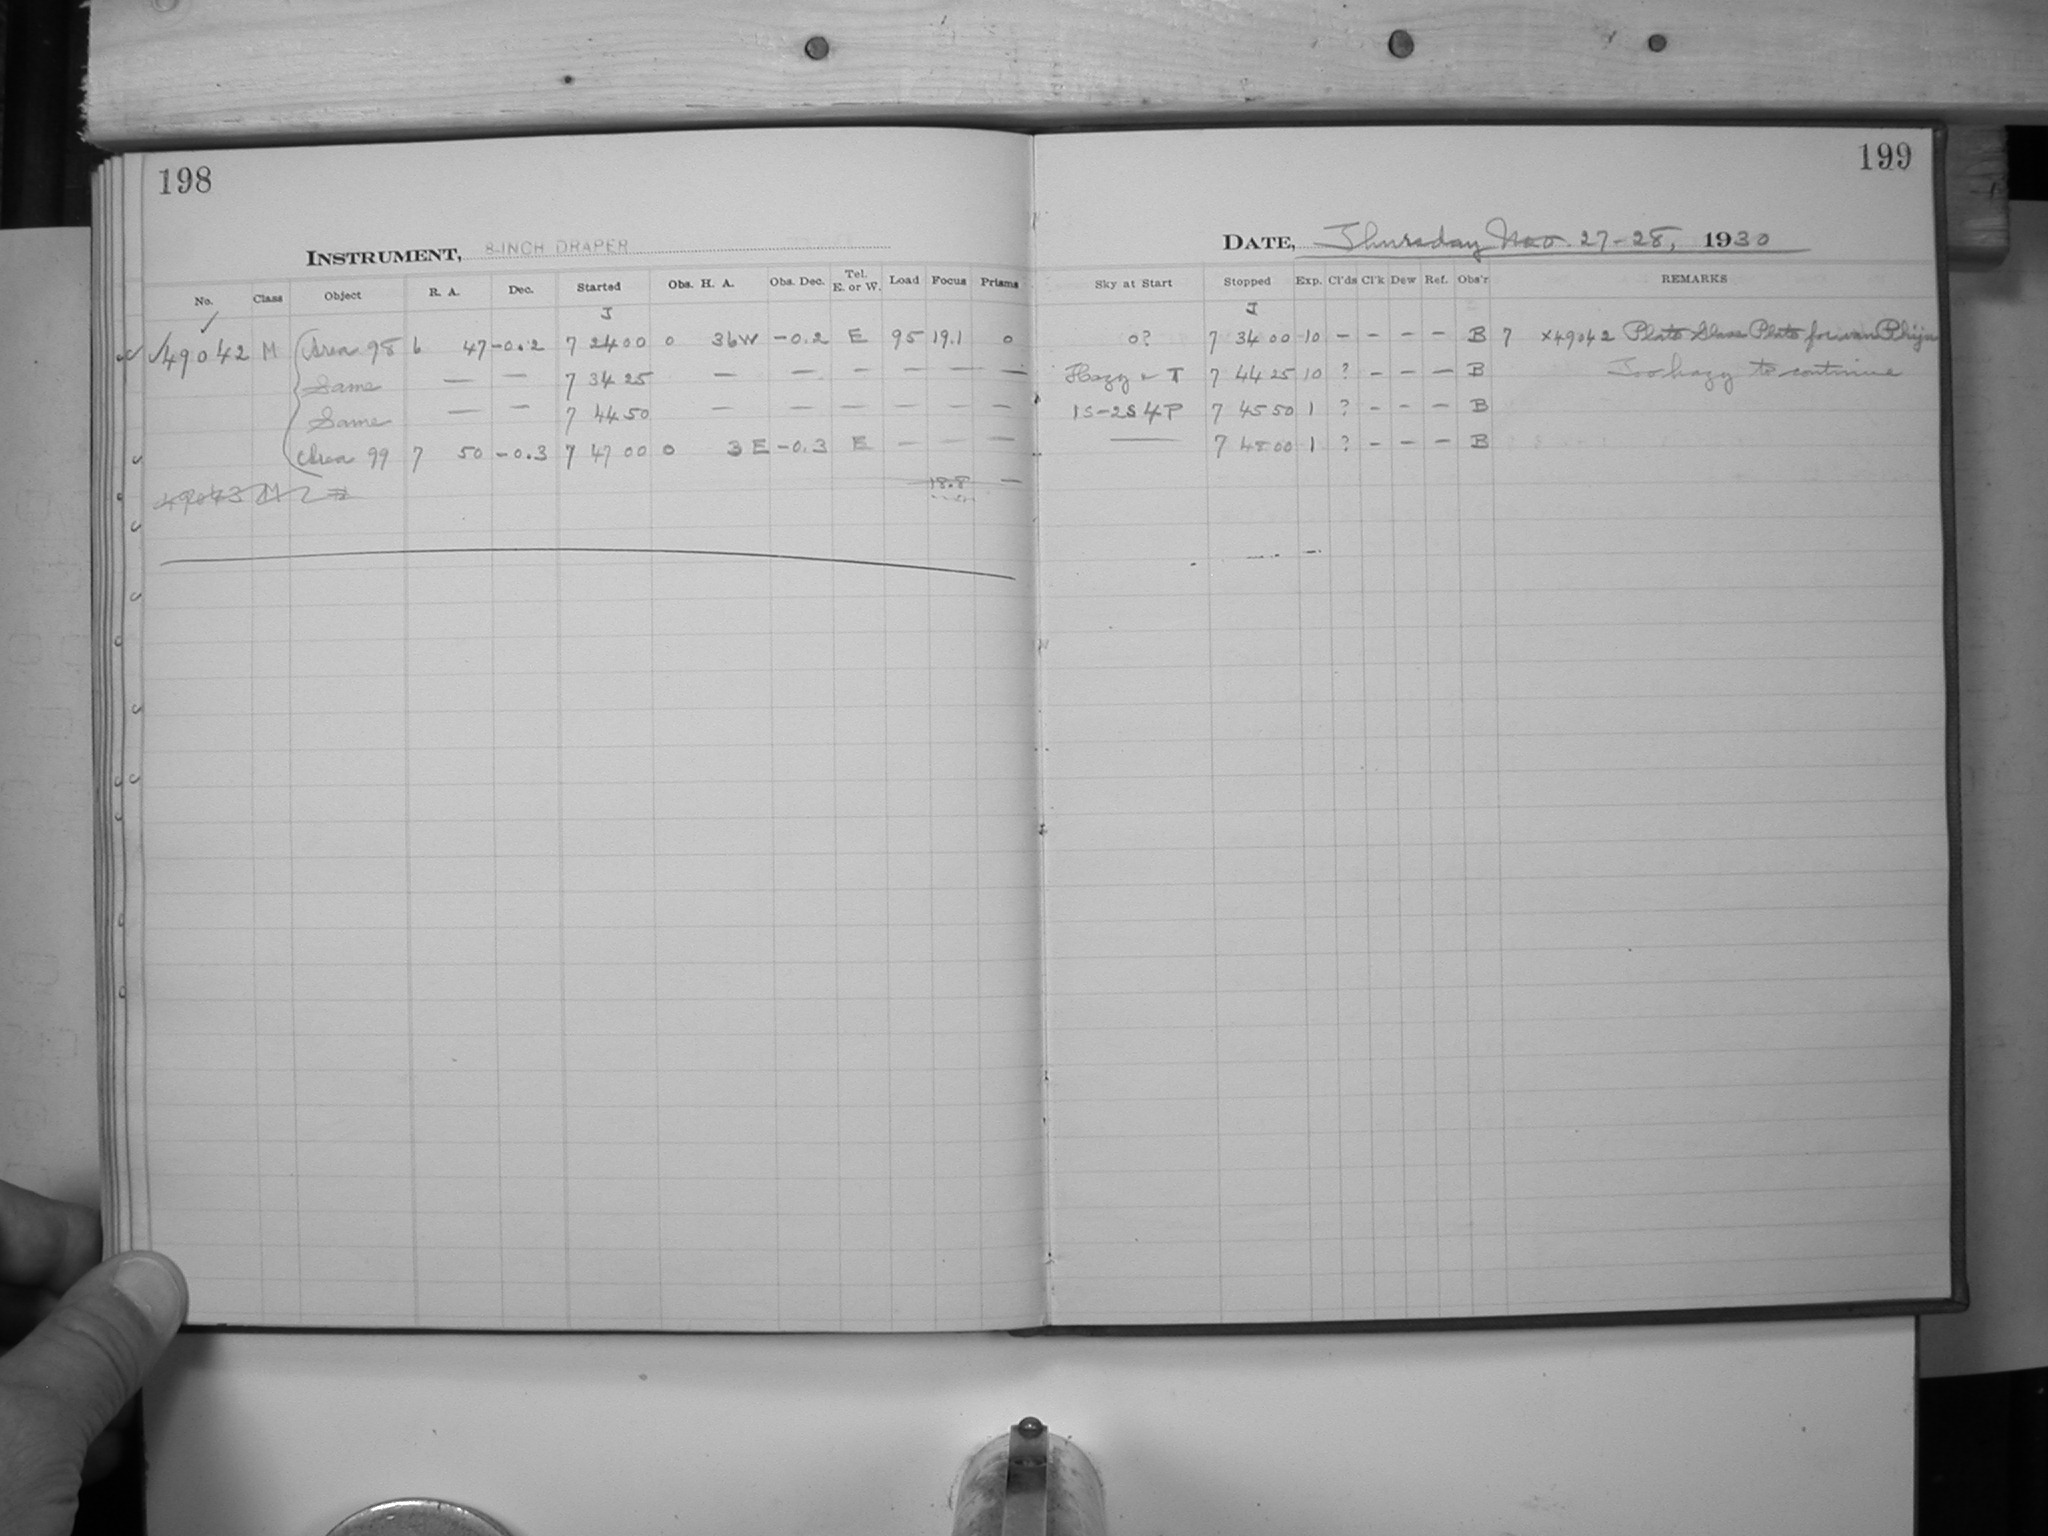 198
INSTRUMENT, 8-INCH DRAPER
No. Class Object R. A. Dec. Started Obs. H. A. Obs. Dec. Tel. E. or W. Load Focus Prisms
J
✓49042 M Area 98 6 47 -0.2 7 24 00 0 36 W -0.2 E 95 19.1 0
Same — — 7 34 25 — — — — — —
Same — — 7 44 50 — — — — — —
Area 99 7 50 -0.3 7 47 00 0 3 E -0.3 E — — —
49043 M 18.8 —
199
DATE, Thursday Nov. 27-28, 1930
Sky at Start Stopped Exp. Cl'ds Cl'k Dew Ref. Obs'r REMARKS
J
0? 7 34 00 10 — — — — B 7 x49042 Plate Glass Plate for van Rhijn
Hazy & T 7 44 25 10 ? — — — B Too hazy to continue
1S-2S 4P 7 45 50 1 ? — — — B
— 7 48 00 1 ? — — — B